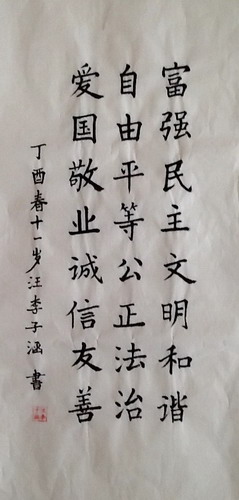 富强民主文明和谐
自由平等公正法治
爱国敬业诚信友善
丁酉春十一岁汪李子涵书